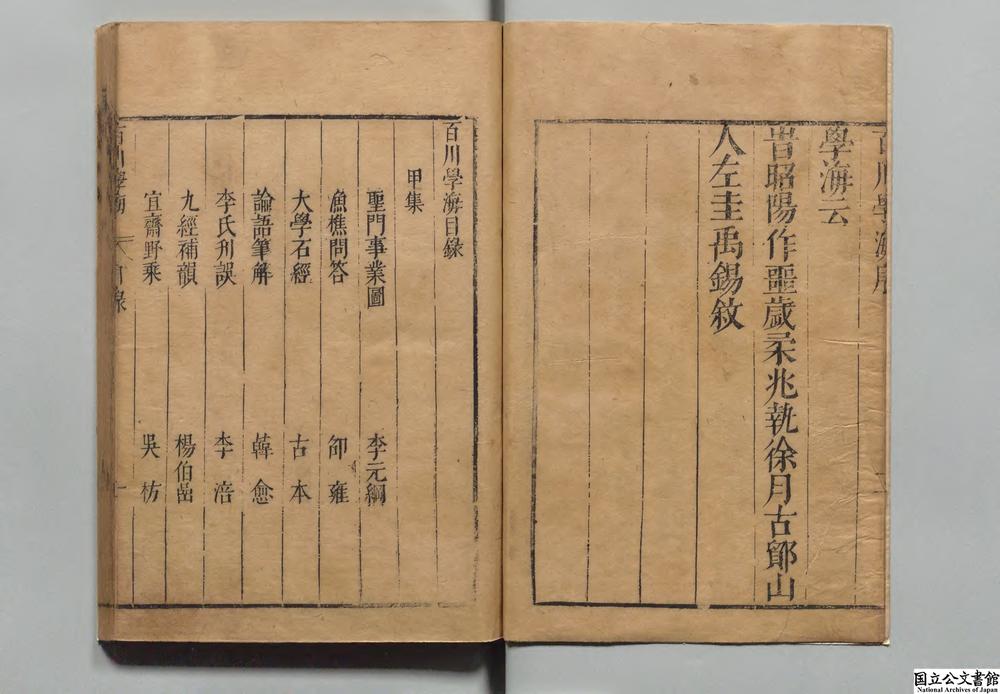 百川學海序
學海云
昔昭陽作噩歲柔兆執徐月古鄮山
人左圭禹錫敘
百川學海目錄
甲集
聖門事業圖 李元綱
漁樵問答 邵雍
大學石經 古本
論語筆解 韓愈
李氏刊誤 李涪
九經補韻 楊伯嵒
宜齋野乘 吳枋
百川學海 目錄 一
国立公文書館
National Archives of Japan